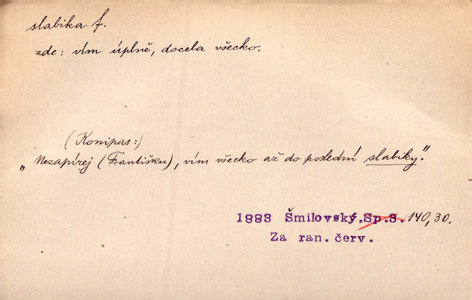 slabika f.
zde: vím úplně, docela všecko.
(Konipas:)
„Nezapírej (Františku), vím všecko až do poslední slabiky."
1883 Šmilovský, Sp.S. 140,30.
Za ran. červ.